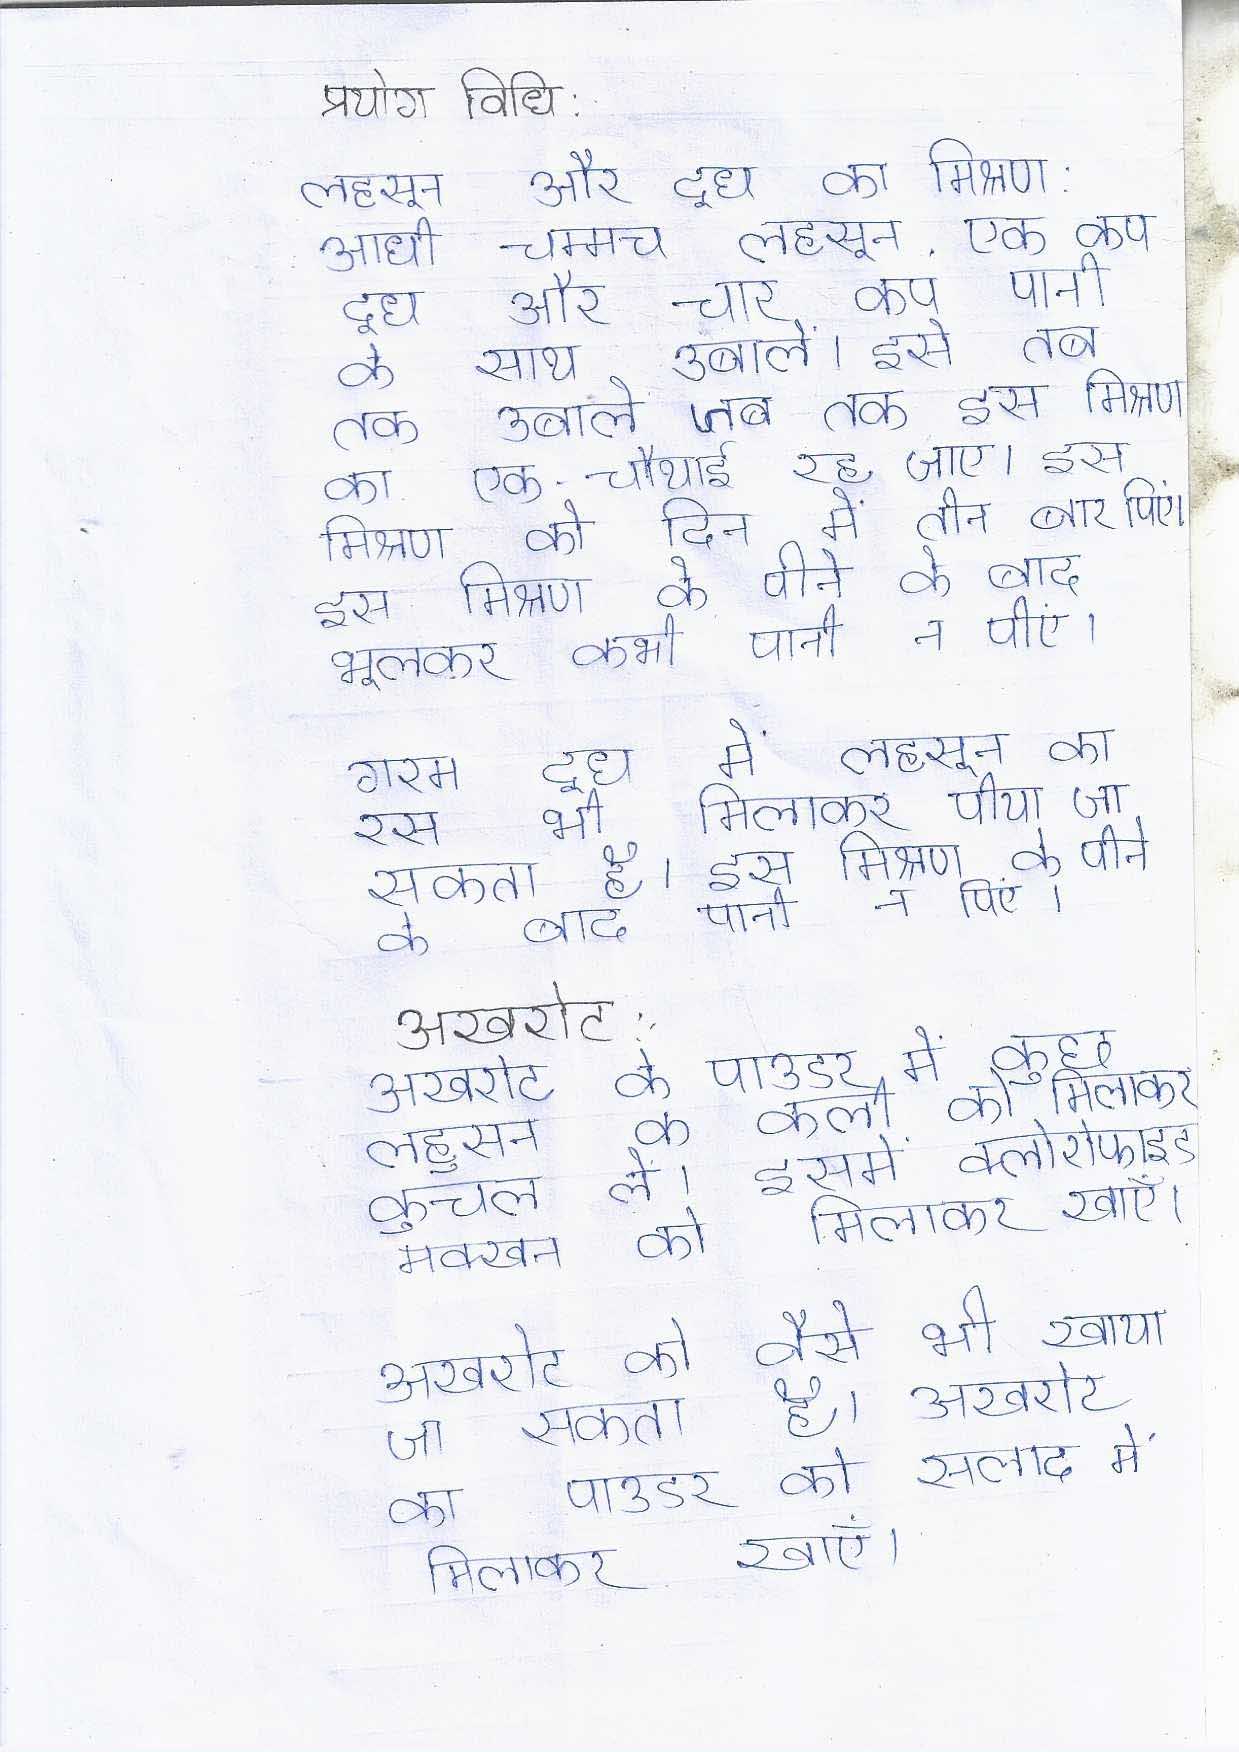 प्रयोग विधि:
लहसून और दूध का मिश्रण:
आधी चम्मच लहसून, एक कप
दूध और चार कप पानी
के साथ उबालें। इसे तब
तक उबाले जब तक इस मिश्रण
का एक-चौथाई रह जाए। इस
मिश्रण को दिन में तीन बार पिएं।
इस मिश्रण के पीने के बाद
भूलकर कभी पानी न पीएं।
गरम दूध में लहसून का
रस भी मिलाकर पीया जा
सकता है। इस मिश्रण के पीने
के बाद पानी न पिएं।
अखरोट:
अखरोट के पाउडर में कुछ
लहुसन क कली को मिलाकर
कुचल लें। इसमें क्लोरोफाइड
मक्खन को मिलाकर खाएँ।
अखरोट को वैसे भी खाया
जा सकता है। अखरोट
का पाउडर को सलाद में
मिलाकर खाएँ।